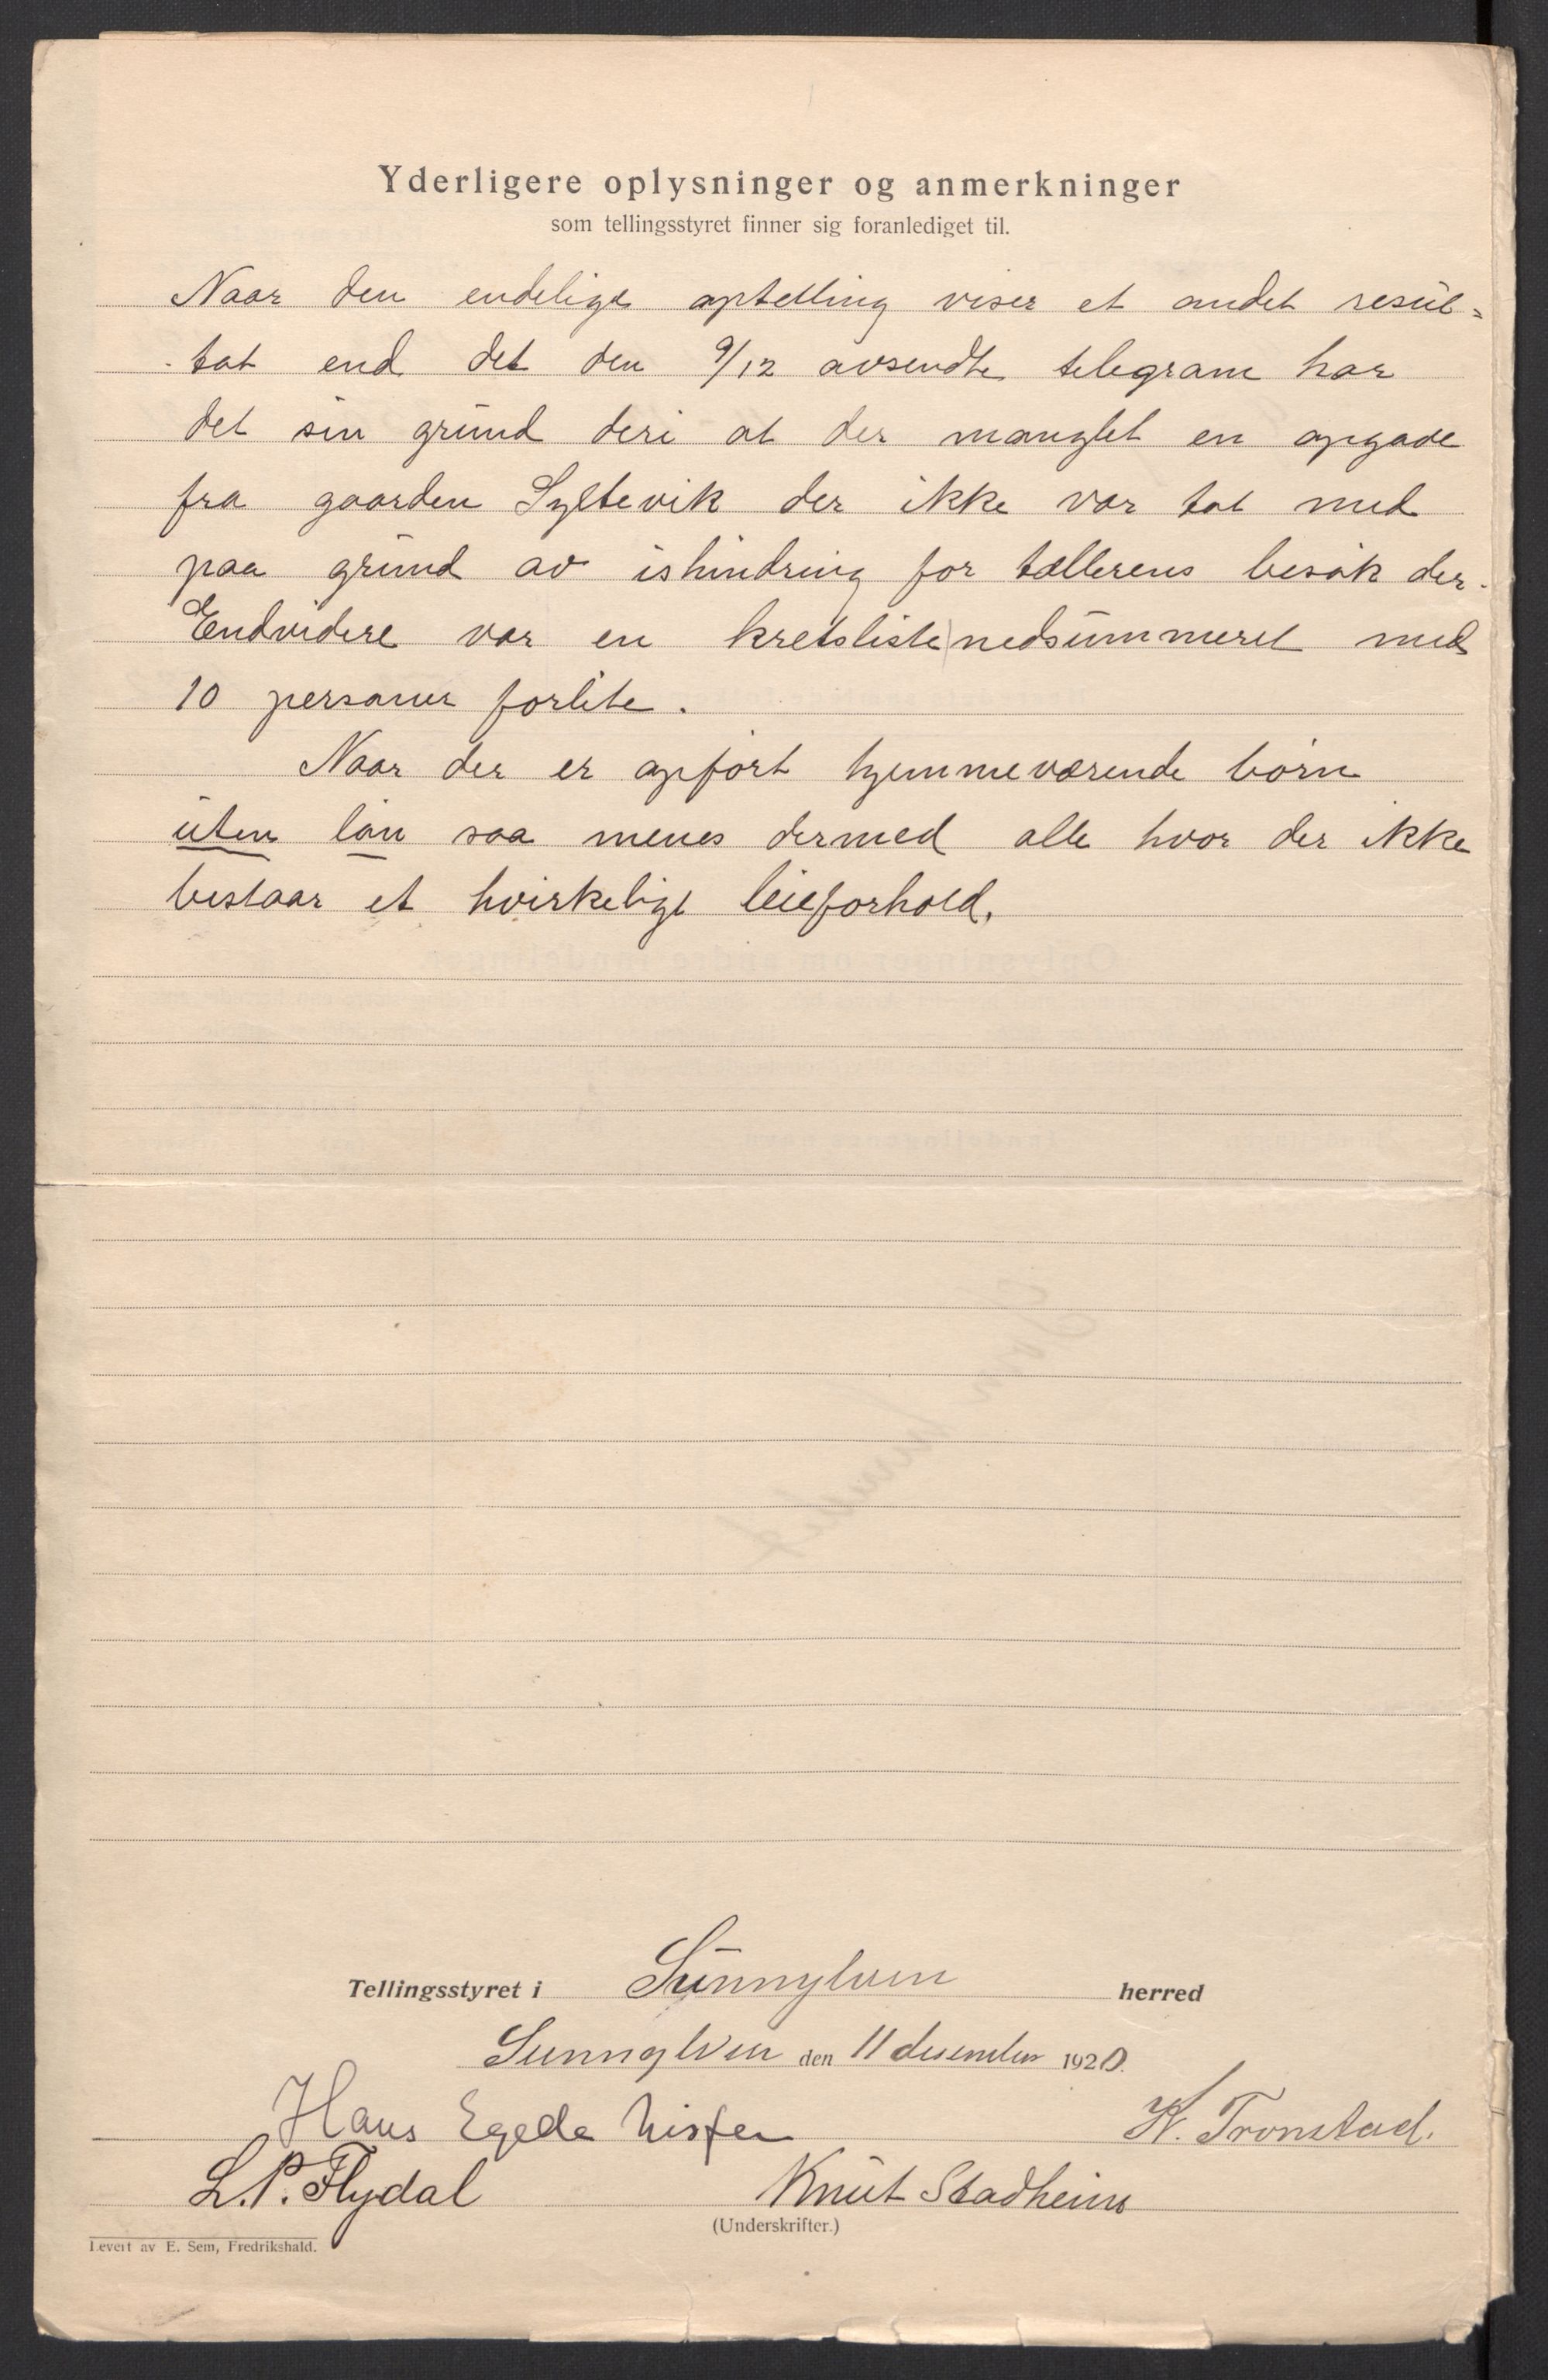 Yderligere oplysninger og anmerkninger
som tellingsstyret finner sig foranlediget til.
Naar den endelige optelling viser et andet resul=
tat end det den 9/12 avsendte telegram har
det sin grund deri at der manglet en opgave
fra gaarden Syltevik der ikke var tat med
paa grund av ishindring for tællerens besøk der.
Endvidere var en kretsliste nedsummeret med
10 personer forlite.
Naar der er opført hjemmeværende børn
uten løn saa menes dermed alle hvor der ikke
bestaar et hvirkeligt leieforhold.
Tellingsstyret i Sunnylven herred
Sunnylven den 11 desember 1920.
Hans Egede Nissen K. Tronstad.
L. P. Flydal Knut Stadheim
(Underskrifter.)
Levert av E. Sem, Fredrikshald.